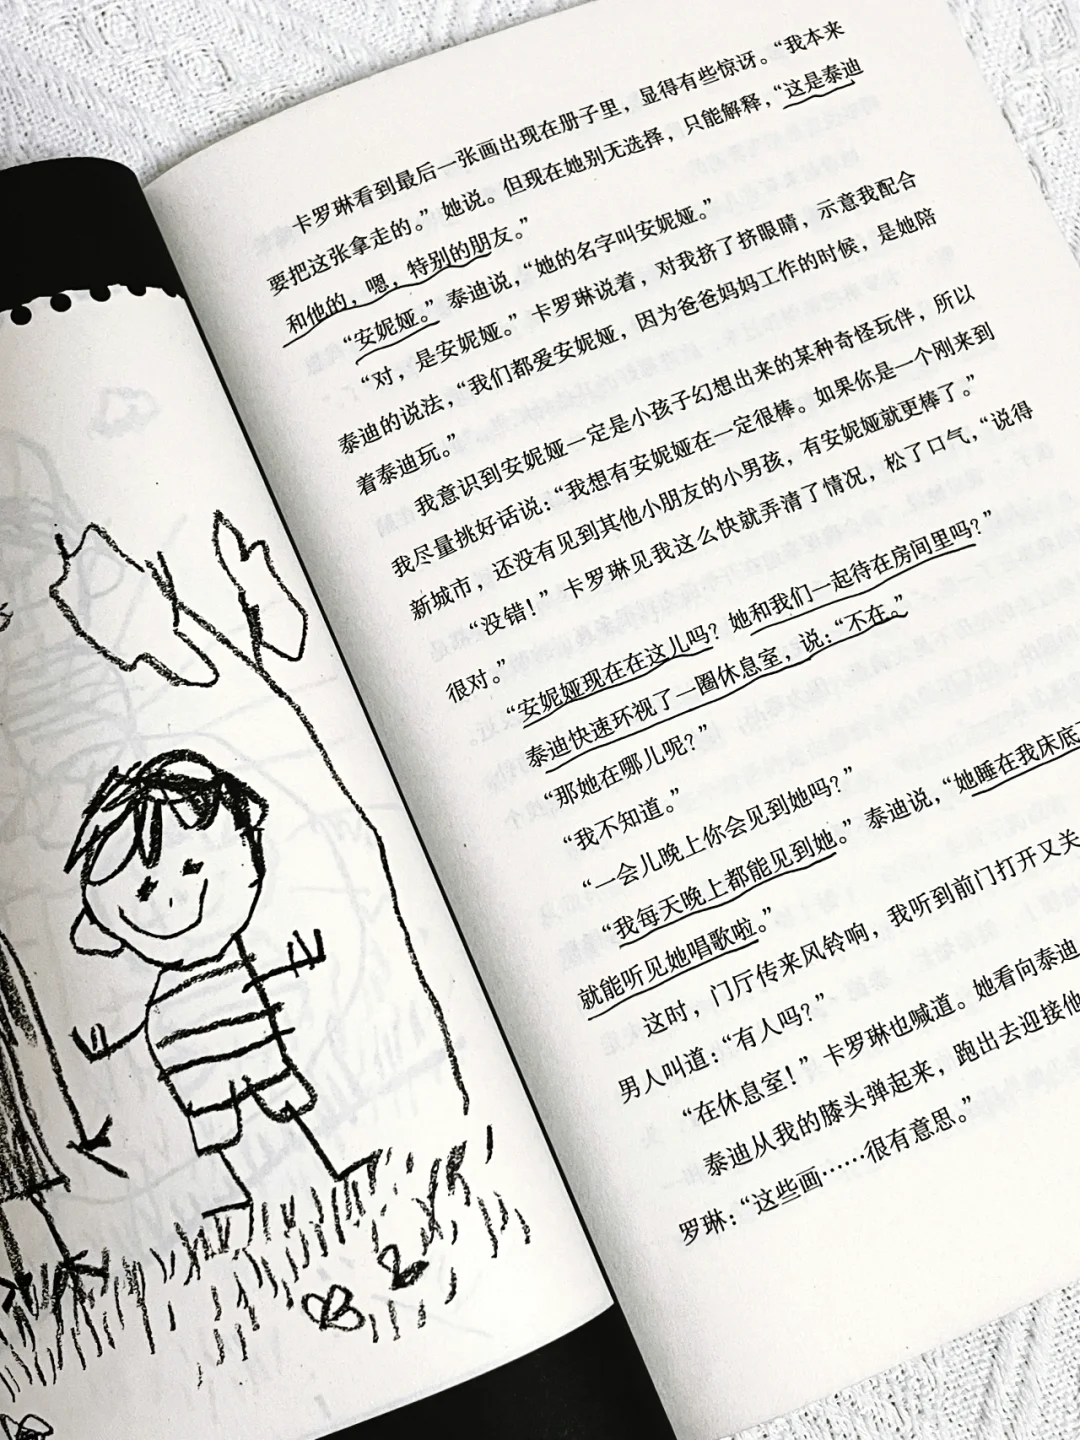 卡罗琳看到最后一张画出现在册子里，显得有些惊讶。“我本来
要把这张拿走的。”她说。但现在她别无选择，只能解释，“这是泰迪
和他的，嗯，特别的朋友。”
“安妮娅。”泰迪说，“她的名字叫安妮娅。”
“对，是安妮娅。”卡罗琳说着，对我挤了挤眼睛，示意我配合
泰迪的说法，“我们都爱安妮娅，因为爸爸妈妈工作的时候，是她陪
着泰迪玩。”
我意识到安妮娅一定是小孩子幻想出来的某种奇怪玩伴，所以
我尽量挑好话说：“我想有安妮娅在一定很棒。如果你是一个刚来到
新城市，还没有见到其他小朋友的小男孩，有安妮娅就更棒了。”
“没错！”卡罗琳见我这么快就弄清了情况，松了口气，“说得
很对。”
“安妮娅现在在这儿吗？她和我们一起待在房间里吗？”
泰迪快速环视了一圈休息室，说：“不在。”
“那她在哪儿呢？”
“我不知道。”
“一会儿晚上你会见到她吗？”
“我每天晚上都能见到她。”泰迪说，“她睡在我床底
就能听见她唱歌啦。”
这时，门厅传来风铃响，我听到前门打开又关
男人叫道：“有人吗？”
“在休息室！”卡罗琳也喊道。她看向泰迪
泰迪从我的膝头弹起来，跑出去迎接他
罗琳：“这些画……很有意思。”